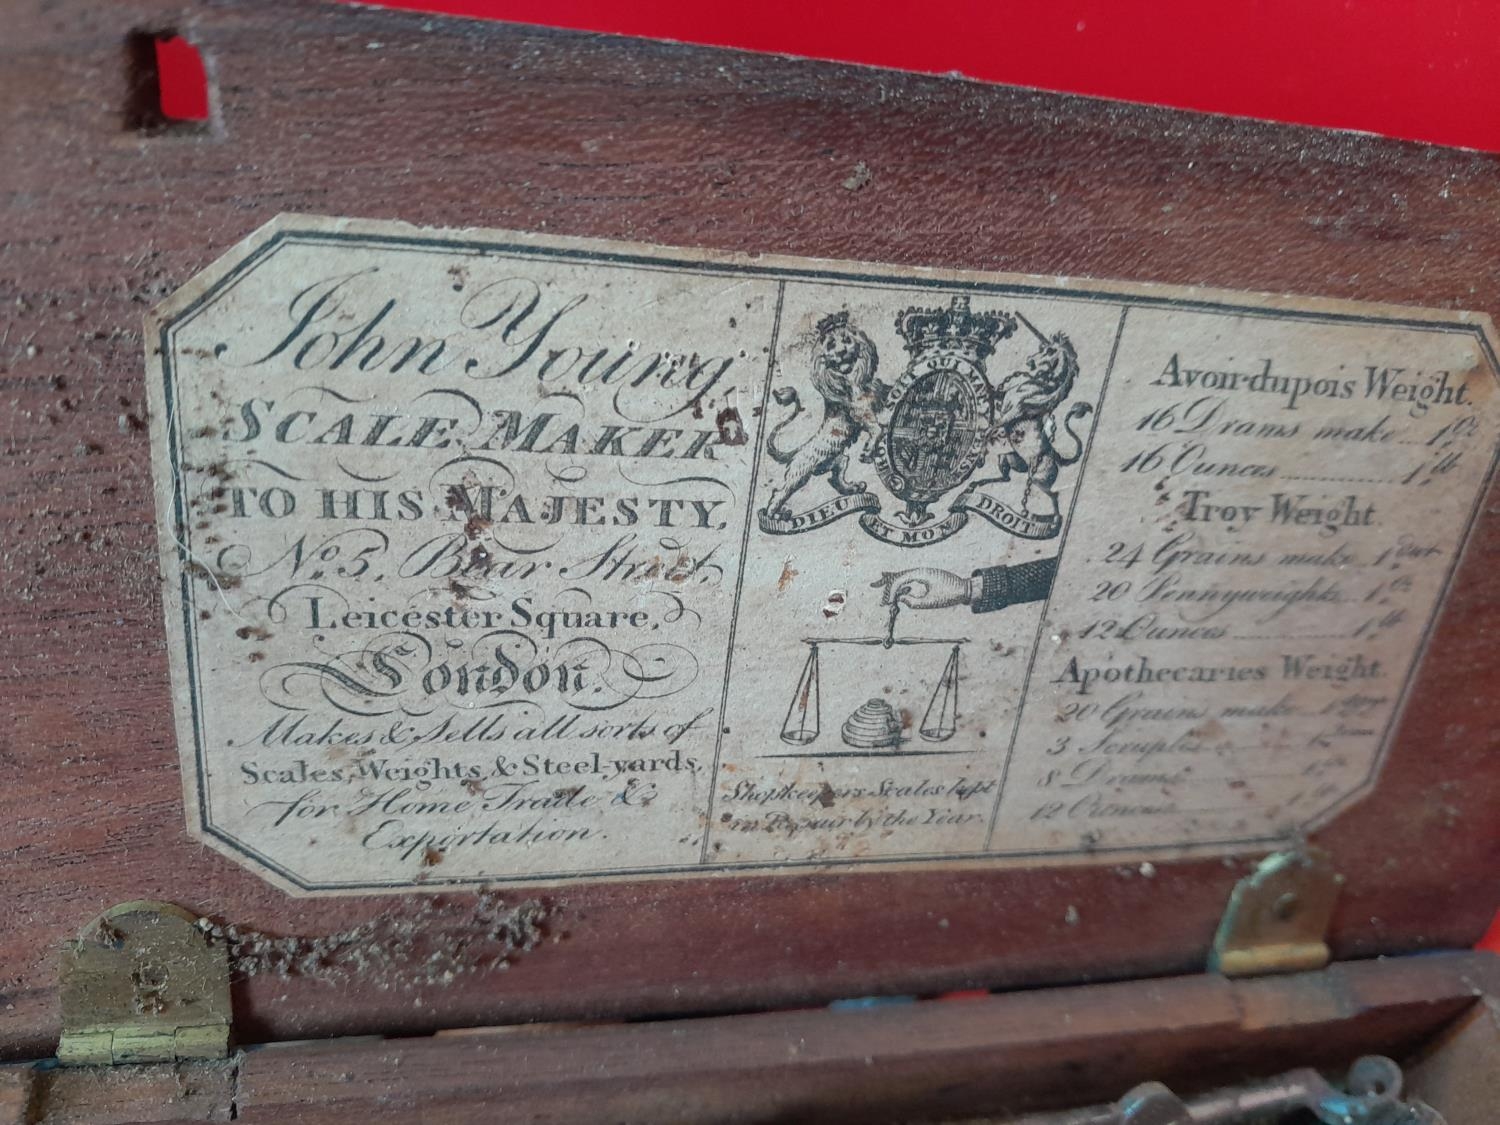 John Young,
SCALE MAKER
TO HIS MAJESTY,
No. 5, Bear Street,
Leicester Square,
London.
Makes & Sells all sorts of
Scales, Weights, & Steel-yards,
for Home Trade &
Exportation.
HONI SOIT QUI MAL Y PENSE
DIEU ET MON DROIT
Shopkeepers Scales kept
in Repair by the Year.
Avoirdupois Weight.
16 Drams make 1 oz
16 Ounces 1 lb
Troy Weight
24 Grains make 1 dwt
20 Pennyweights 1 oz
12 Ounces 1 lb
Apothecaries Weight.
20 Grains make 1
3 Scruples 1
8 Drams 1
12 Ounces 1